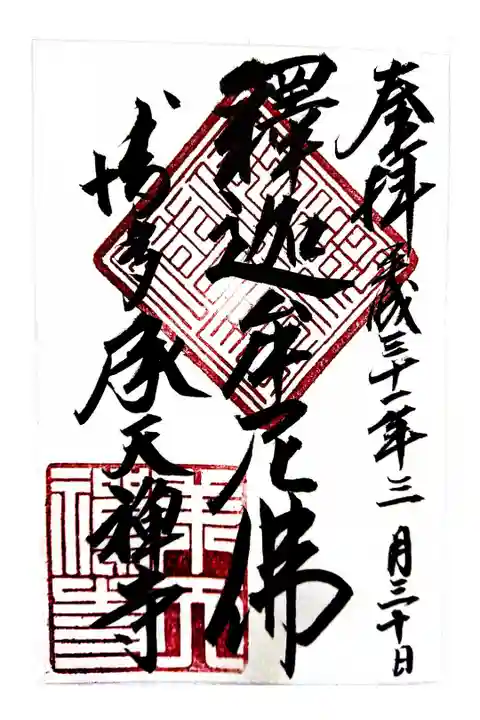 奉拝 平成三十一年三月三十日
釋迦牟尼佛
博多承天禅寺
承天禅寺